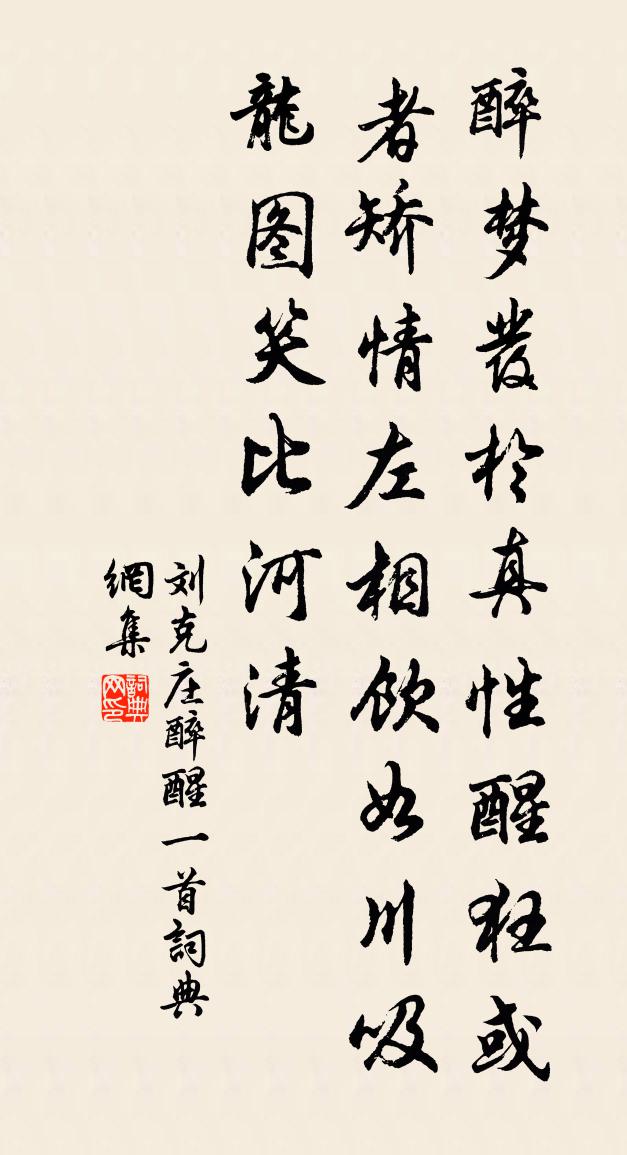 醉梦發於真性醒狂或
者矫情左相饮如川吸
龍图笑比河清
刘克庄醉醒一首詞典
網集
詞典網印